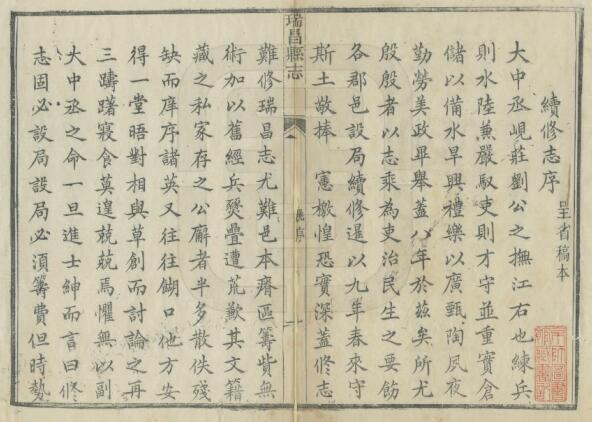 續修志序
呈省稿本
大中丞峴莊劉公之撫江右也練兵
則水陸兼嚴馭吏則才守並重實倉
儲以備水旱興禮樂以廣甄陶夙夜
勤勞美政畢舉蓋八年於茲矣所尤
殷殷者以志乘為吏治民生之要飭
各郡邑設局續修暹以九年春來守
斯土敬捧憲檄惶恐實深蓋修志
瑞昌縣志
序
一
難修瑞昌志尤難邑本瘠區籌貲無
術加以舊經兵燹疊遭荒歉其文籍
藏之私家存之公廨者半多散佚殘
缺而庠序諸英又往往餬口他方安
得一堂晤對相與草創而討論之再
三躊躇寢食莫遑兢兢焉懼無以副
大中丞之命一旦進士紳而言曰修
志固必設局設局必須籌費但時勢